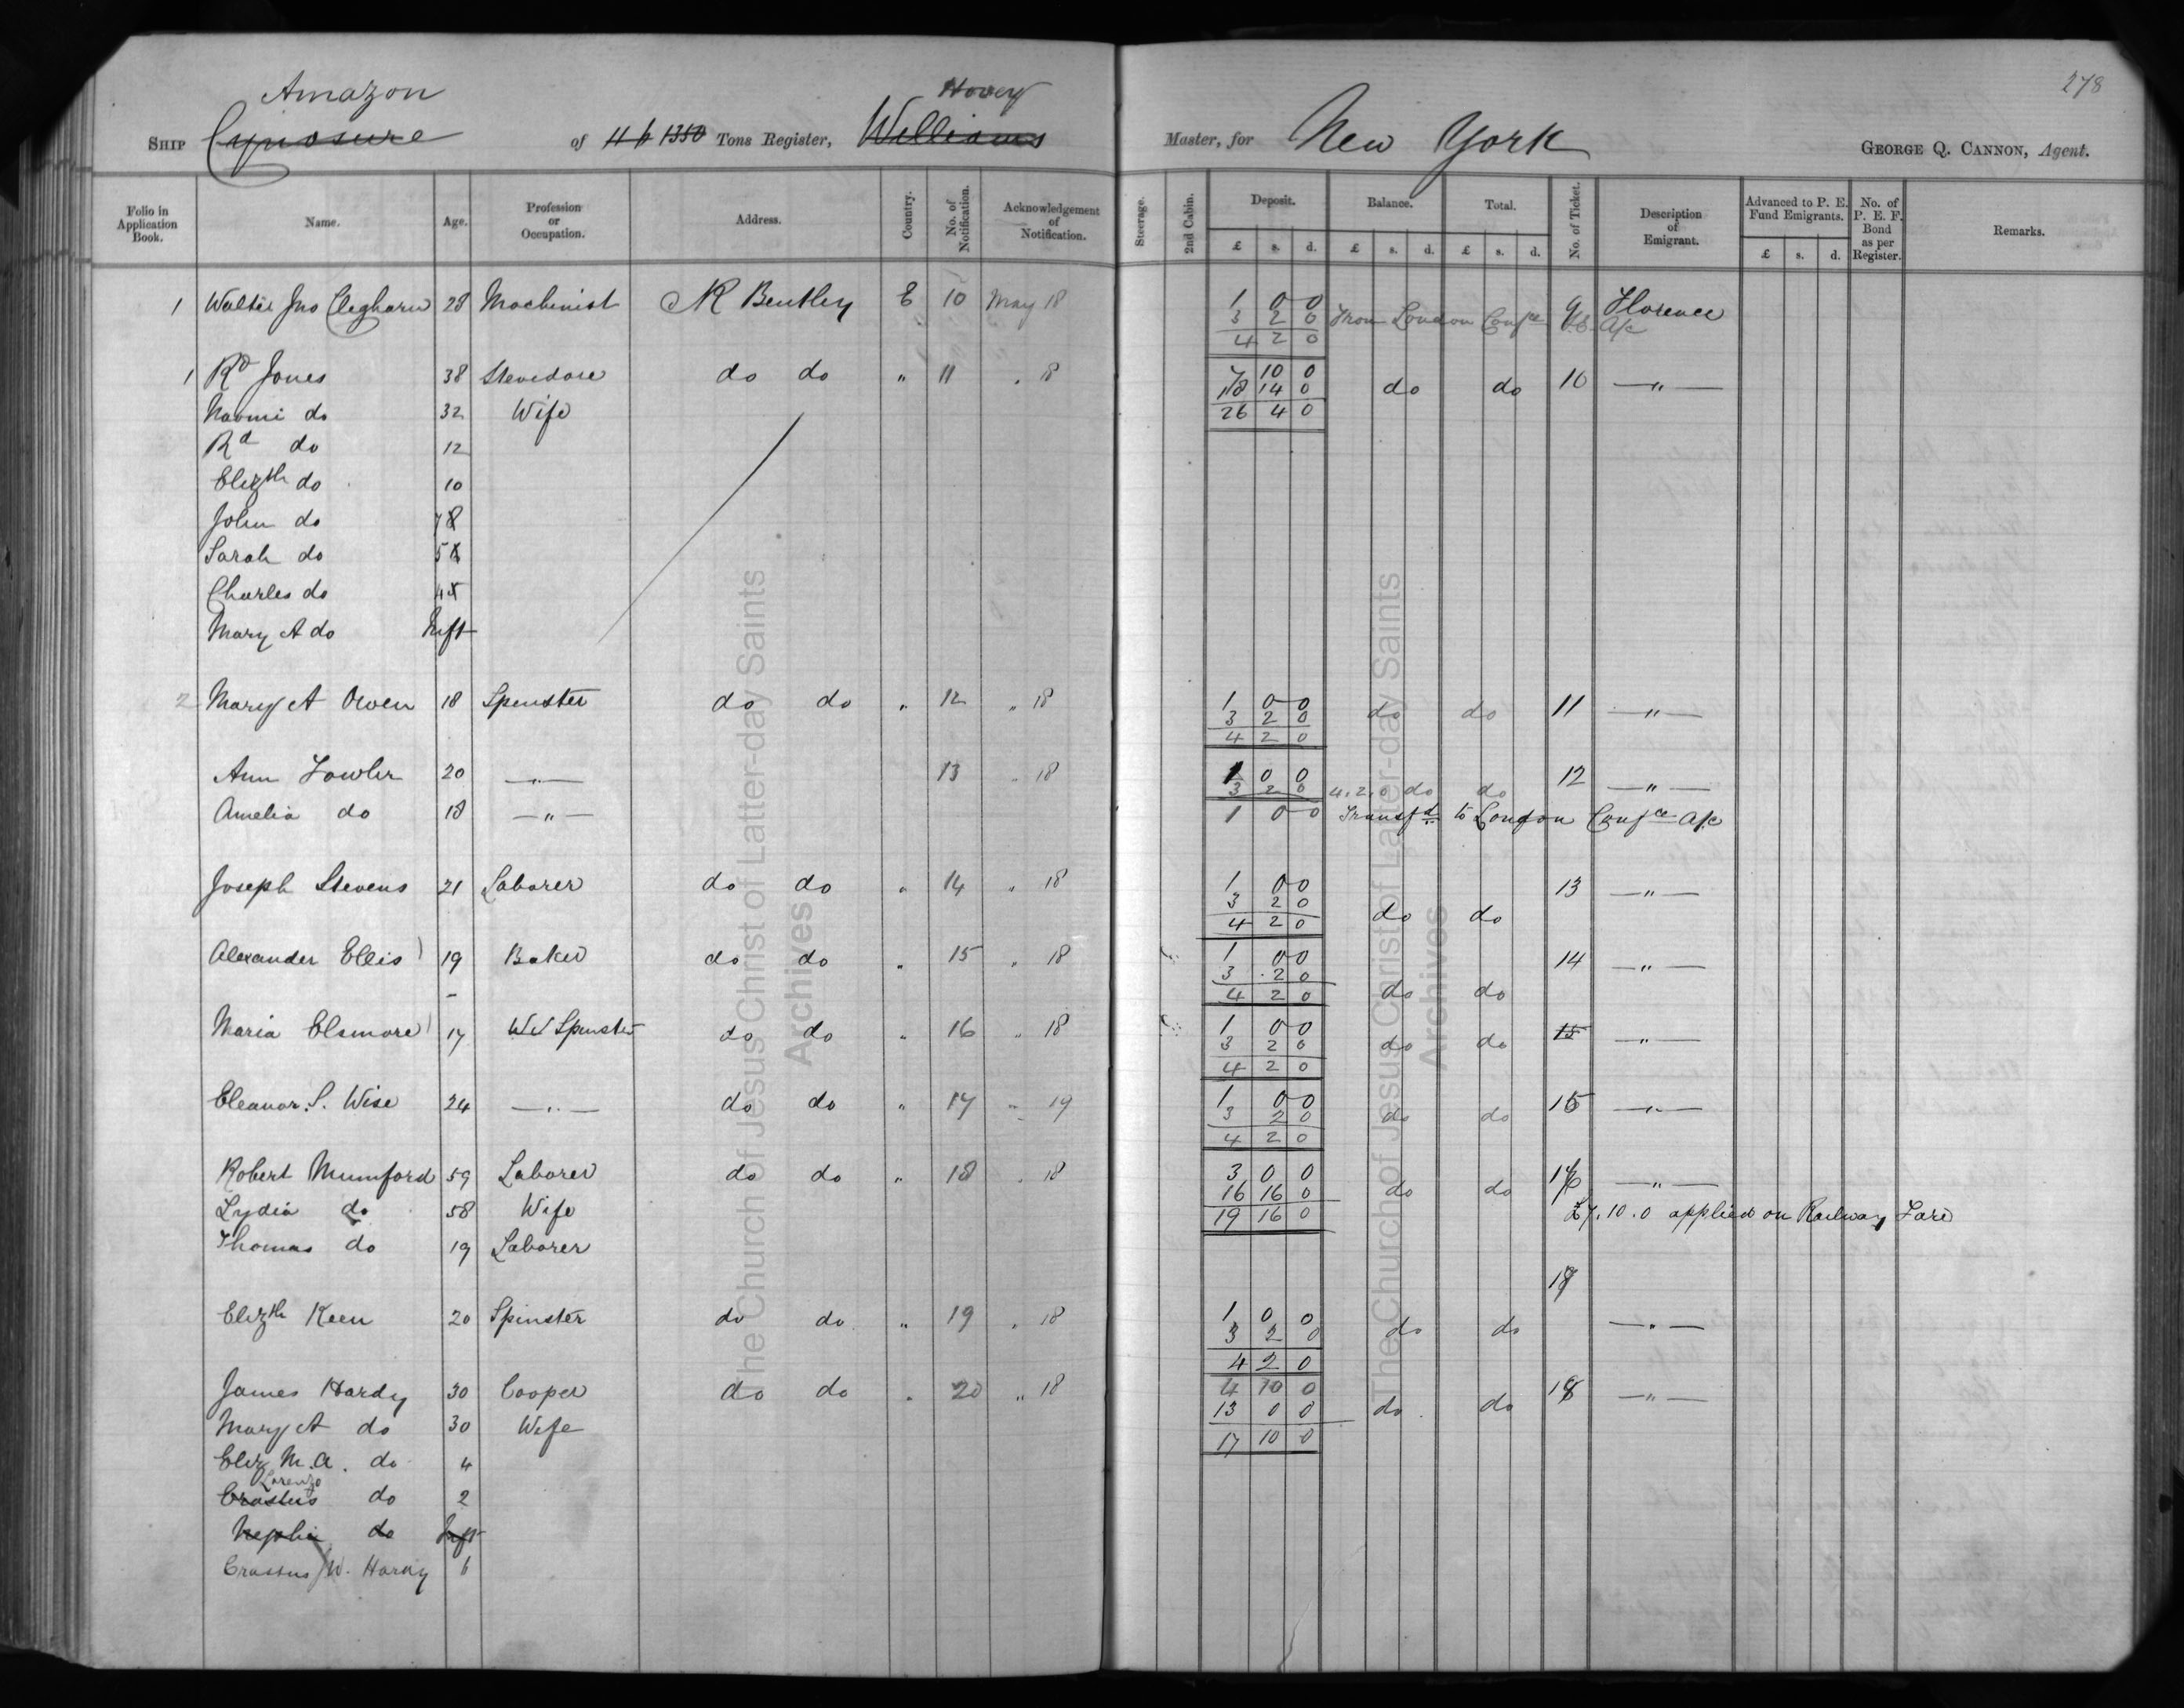 278
Amazon Hovey
SHIP Cynosure of 116 1350 Tons Register, Williams Master, for New York GEORGE Q. CANNON, Agent.
Folio in Application Book. Name. Age. Profession or Occupation. Address. Country. No. of Notification. Acknowledgement of Notification. Steerage. 2nd Cabin. Deposit. Balance. Total. No. of Ticket. Description of Emigrant. Advanced to P. E. Fund Emigrants. No. of P. E. F. Bond as per Register. Remarks.
£ s. d. £ s. d. £ s. d. £ s. d.
1 Walter Jno Cleghorn 28 Machinist N R Bentley E 10 May 18 1 0 0 9 Florence
3 2 0 From London Confce A/c
4 2 0
1 Rd Jones 38 Stevedore do do " 11 " 18 7 10 0 10 — " —
18 14 0 do do
Naomi do 32 Wife 26 4 0
Rd do 12
Elizth do 10
John do 7 8
Sarah do 5
Charles do 4
Mary A do Inft
2 Mary A Owen 18 Spinster do do " 12 " 18 1 0 0 11 — " —
3 2 0 do do
4 2 0
Ann Fowler 20 — " — 13 " 18 1 0 0 12 — " —
3 2 0 4.2.0 do do
Amelia do 18 — " — 1 0 0 Transfd to London Confce A/c
Joseph Stevens 21 Laborer do do " 14 " 18 1 0 0 13 — " —
3 2 0
4 2 0 do do
Alexander Ellis 19 Baker do do " 15 " 18 1 0 0 14 — " —
3 2 0
4 2 0 do do
Maria Elsmore 17 Spinster do do " 16 " 18 1 0 0 15 — " —
3 2 0 do do
4 2 0
Eleanor. S. Wise 24 — " — do do " 17 " 19 1 0 0 15 — " —
3 2 0 do do
4 2 0
Robert Mumford 59 Laborer do do " 18 " 18 3 0 0 16 — " —
16 16 0 do do
Lydia do 58 Wife 19 16 0 £7.10.0 applied on Railway Fare
Thomas do 19 Laborer
17
Elizth Keen 20 Spinster do do " 19 " 18 1 0 0 — " —
3 2 0 do do
4 2 0
James Hardy 30 Cooper do do " 20 " 18 4 10 0 18 — " —
13 0 0 do do
Mary A do 30 Wife 17 10 0
Eliz M.A. do 4
Lorenzo
Erastus do 2
Nephi do Inft
Erastus W. Hardy 6
The Church of Jesus Christ of Latter-day Saints
Archives
The Church of Jesus Christ of Latter-day Saints
Archives